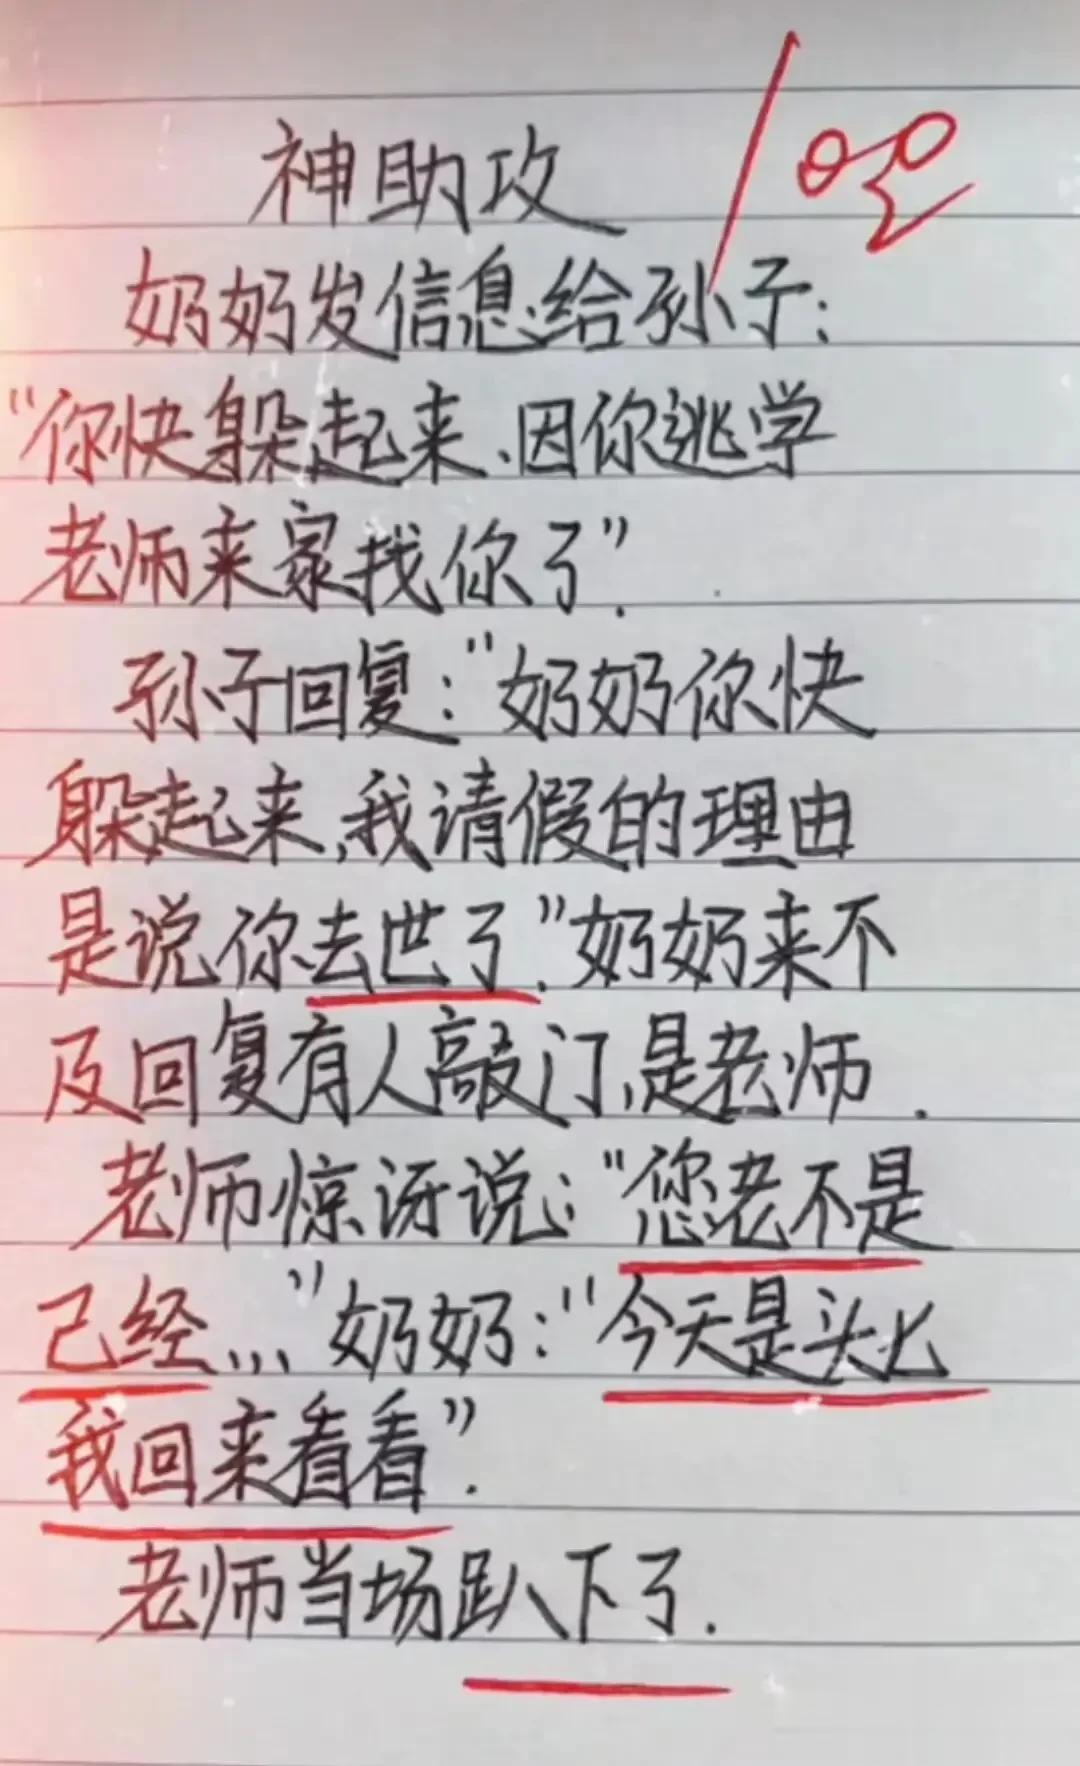 神助攻
100
奶奶发信息给孙子：
“你快躲起来、因你逃学
老师来家找你了”.
孙子回复：“奶奶你快
躲起来,我请假的理由
是说你去世了.”奶奶来不
及回复有人敲门,是老师.
老师惊讶说：“您老不是
已经...”奶奶：“今天是头七
我回来看看”.
老师当场趴下了.